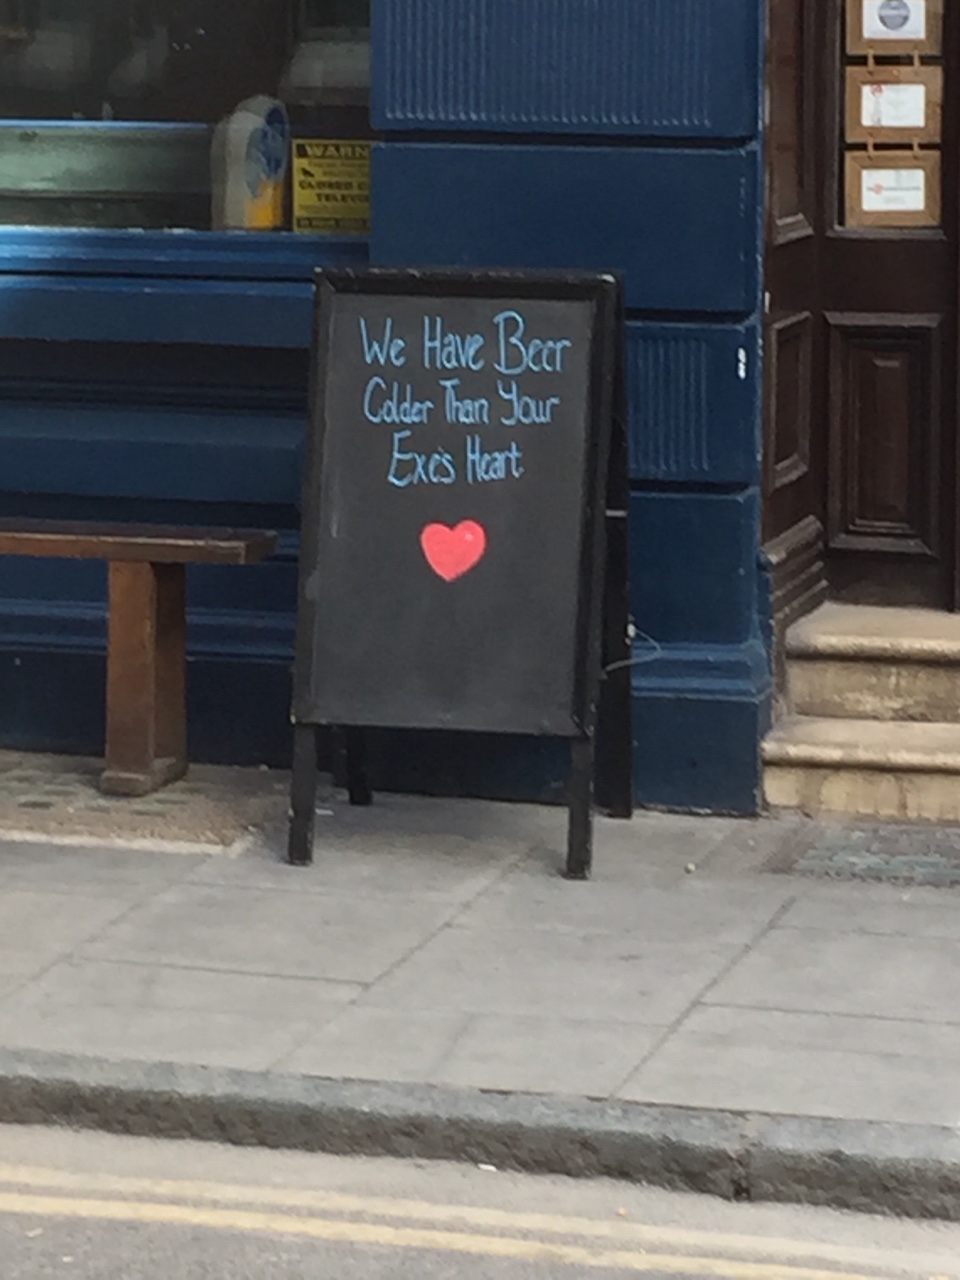 WARN
CLOSED C
TELEVIS
We Have Beer
Colder Than Your
Exe's Heart